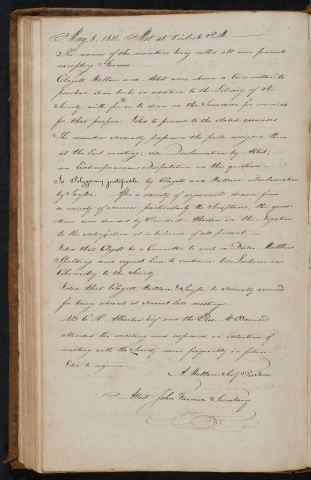 May 8, 1811. Met at 7 o'clock P.M.
The names of the members being called all were present
excepting Farmer
Clagett, Wallace and Abbot were chosen a Committee to
purchase some books in addition to the Library of the
Society with power to draw on the Treasurer for monies
for that purpose. Voted to proceed to the stated exercises
The members severally performed the parts assigned them
at the last meeting, viz. Declamation by Abbot,
an Extemporaneous Disputation on the question
Is Polygamy justifiable by Clagett and Wallace. Declamation
by . After a variety of arguments drawn from
a variety of sources, particularly the Scriptures, the ques-
tion was decided by President Atherton in the Negative
to the satisfaction of all present.
Voted that Clagett be a Committee to wait on Doctor Matthias
Spalding and request him to Lectures on
Chemistry to the Society.
Voted that Clagett, Wallace & be severally excused
for being absent at several late meetings.
NB C. H. Atherton Esq and the Rev. Mr Barnard
attended the meeting and expressed an intention of
meeting with the Society more frequently in future.
Voted to adjourn
A. Wallace
Attest John Farmer Secretary